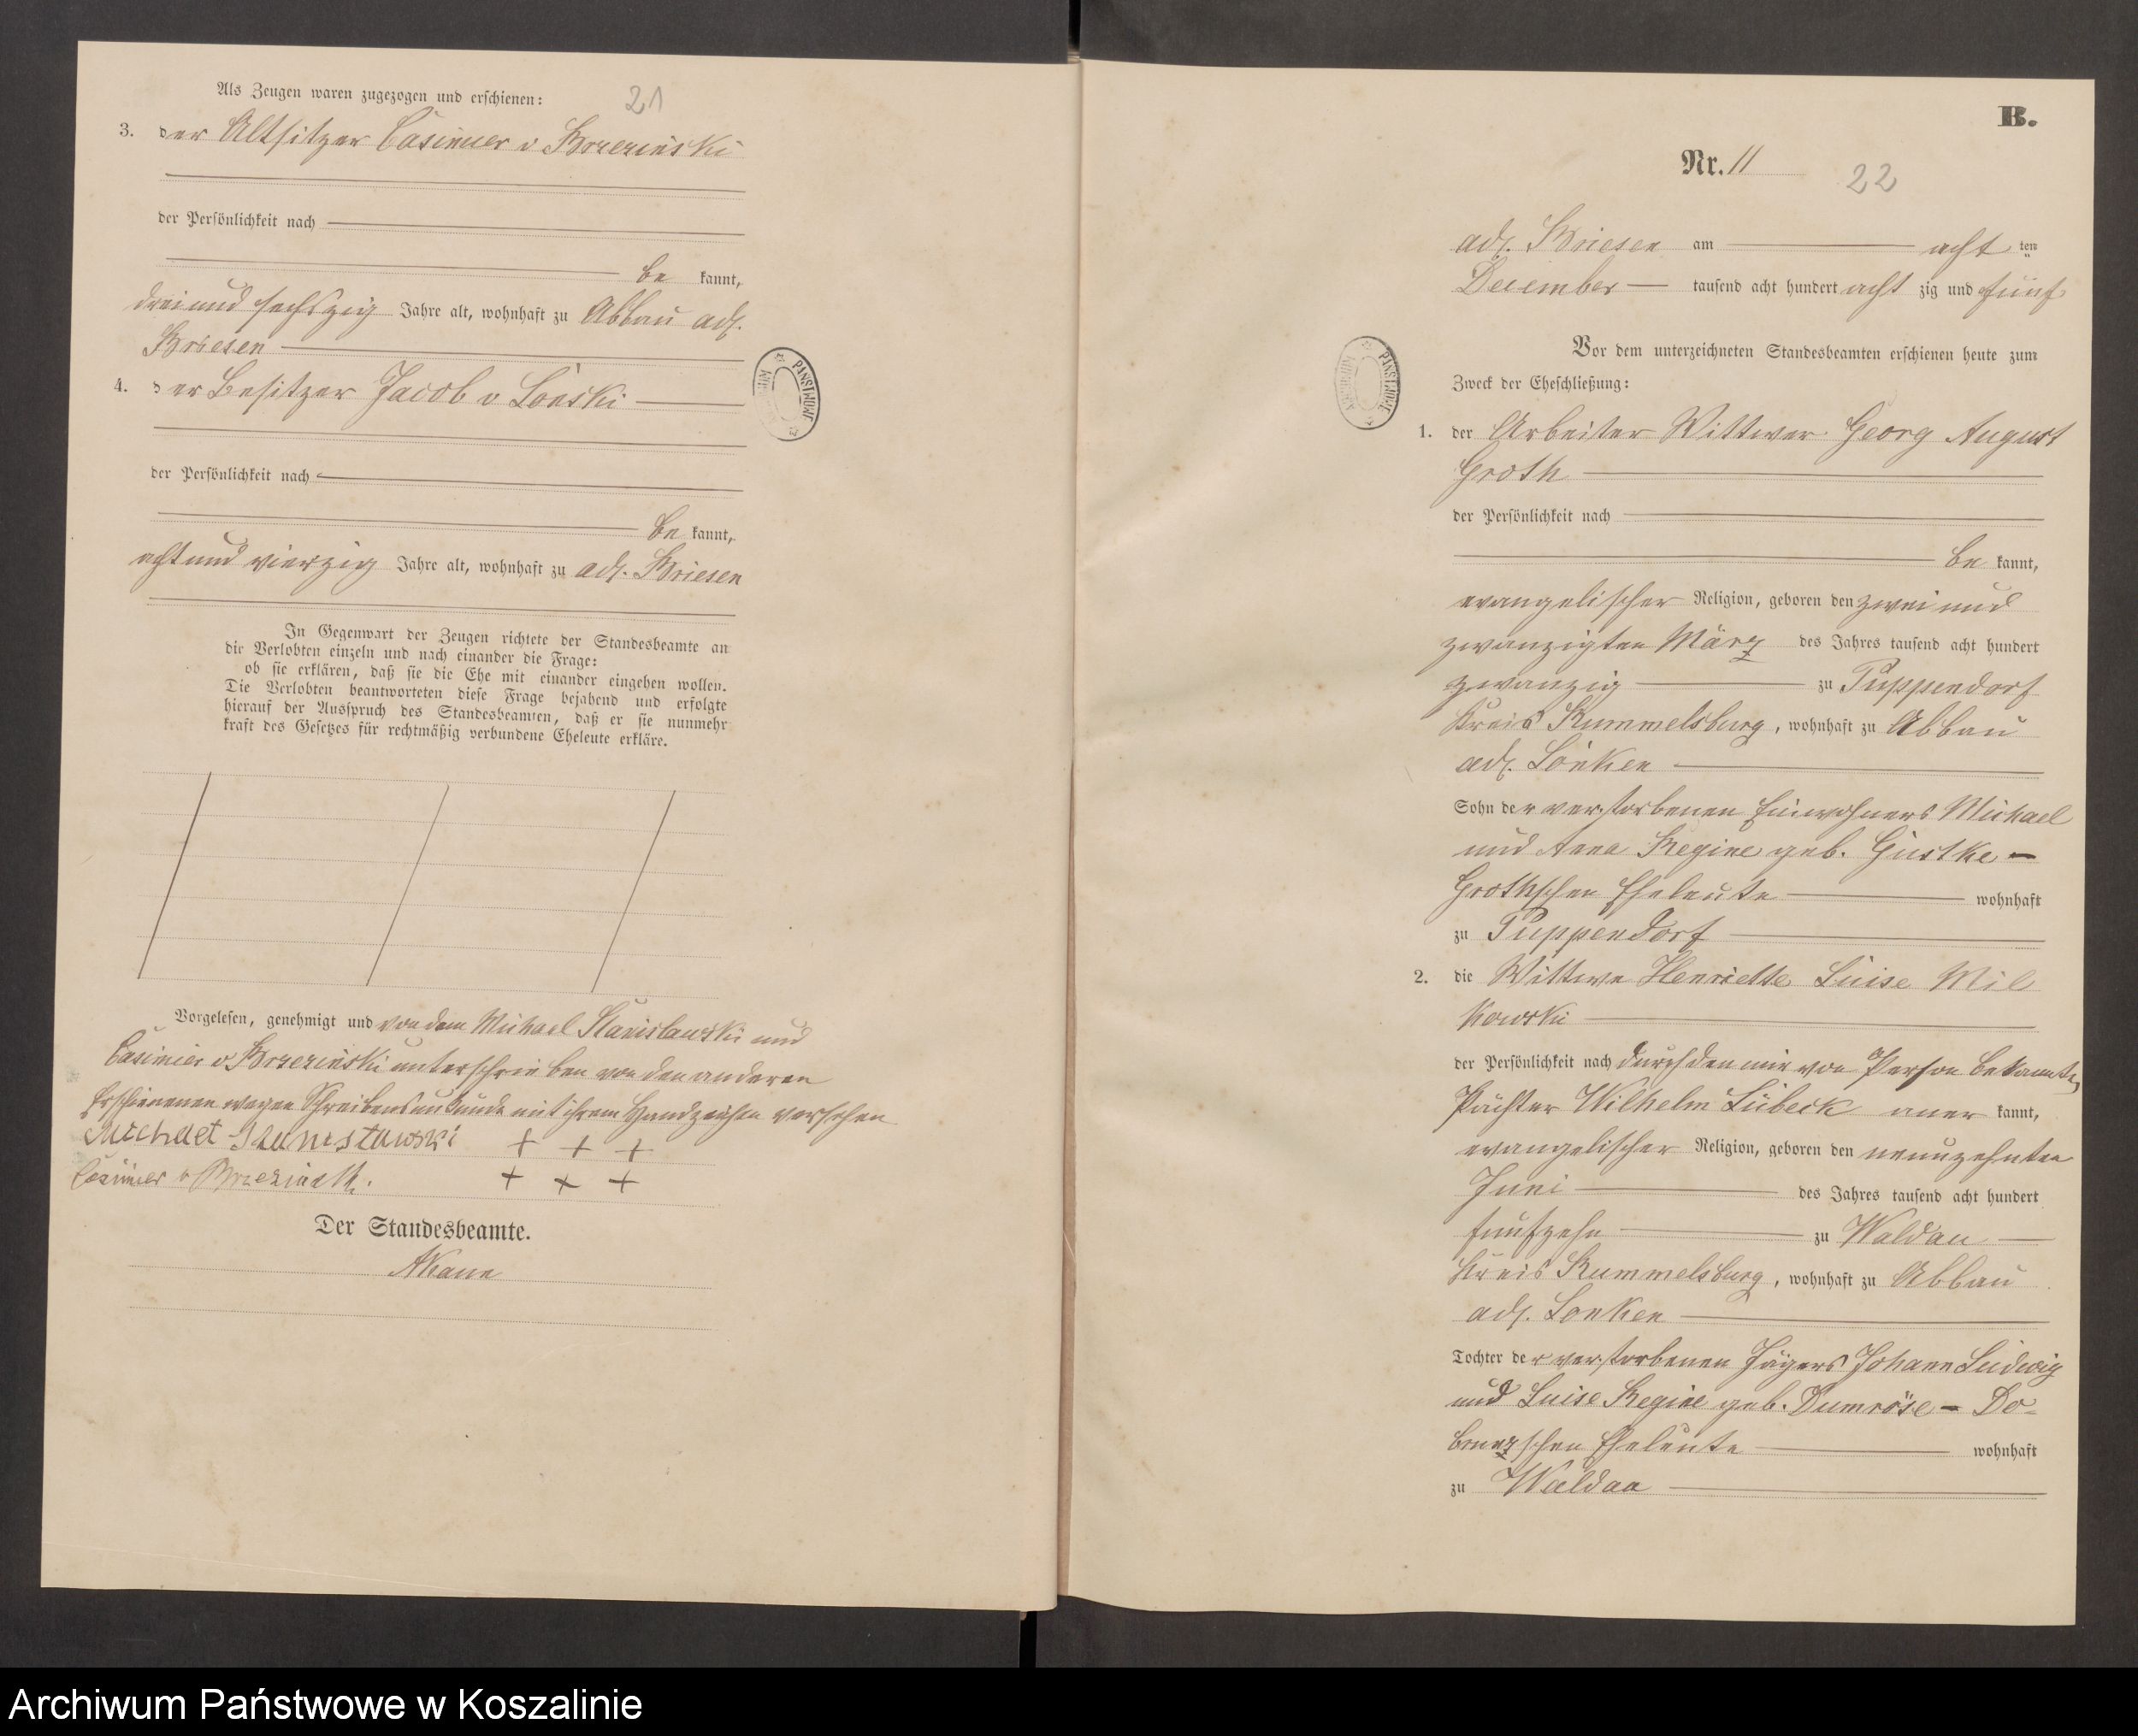 Als Zeugen waren zugezogen und erschienen:
21
3. der Altsitzer Casimier v Brzezinski
der Persönlichkeit nach
be kannt,
drei und sechszig Jahre alt, wohnhaft zu Abbau adl.
Briesen
4. der Besitzer Jacob v Lonski
der Persönlichkeit nach
be kannt,
acht und vierzig Jahre alt, wohnhaft zu adl. Briesen
In Gegenwart der Zeugen richtete der Standesbeamte an
die Verlobten einzeln und nach einander die Frage:
ob sie erklären, daß sie die Ehe mit einander eingehen wollen.
Die Verlobten beantworteten diese Frage bejahend und erfolgte
hierauf der Ausspruch des Standesbeamten, daß er sie nunmehr
kraft des Gesetzes für rechtmäßig verbundene Eheleute erkläre.
Vorgelesen, genehmigt und von dem Michael Stanislawski und
Casimier v Brzezinski unterschrieben von den anderen
Erschienenen wegen Schreibensunkunde mit ihrem Handzeichen versehen
Michael Stanisławski + + +
Casimier v Brzezinsk. + + +
Der Standesbeamte.
PAŃSTWOWE
B.
Nr. 11
22
adl. Briesen am acht ten
December tausend acht hundert acht zig und fünf
Vor dem unterzeichneten Standesbeamten erschienen heute zum
Zweck der Eheschließung:
1. der Arbeiter Wittwer Georg August
Groth
der Persönlichkeit nach
be kannt,
evangelischer Religion, geboren den zwei und
zwanzigten März des Jahres tausend acht hundert
zwanzig zu Puppendorf
Kreis Rummelsburg, wohnhaft zu Abbau
adl. Lonken
Sohn der verstorbenen Einwohners Michael
und Anna Regine geb. Gustke -
Grothschen Eheleute wohnhaft
zu Puppendorf
2. die Wittwe Henriette Luise Mil
kowski
der Persönlichkeit nach durch den mir von Person bekannten
Pächter Wilhelm Lübeck aner kannt,
evangelischer Religion, geboren den neunzehnten
Juni des Jahres tausend acht hundert
funfzehn zu Waldau
Kreis Rummelsburg, wohnhaft zu Abbau
adl. Lonken
Tochter der verstorbenen Jägers Johann Ludwig
und Luise Regine geb. Dumröse - Do-
brnezschen Eheleute wohnhaft
zu Waldau
PAŃSTWOWE
Archiwum Państwowe w Koszalinie